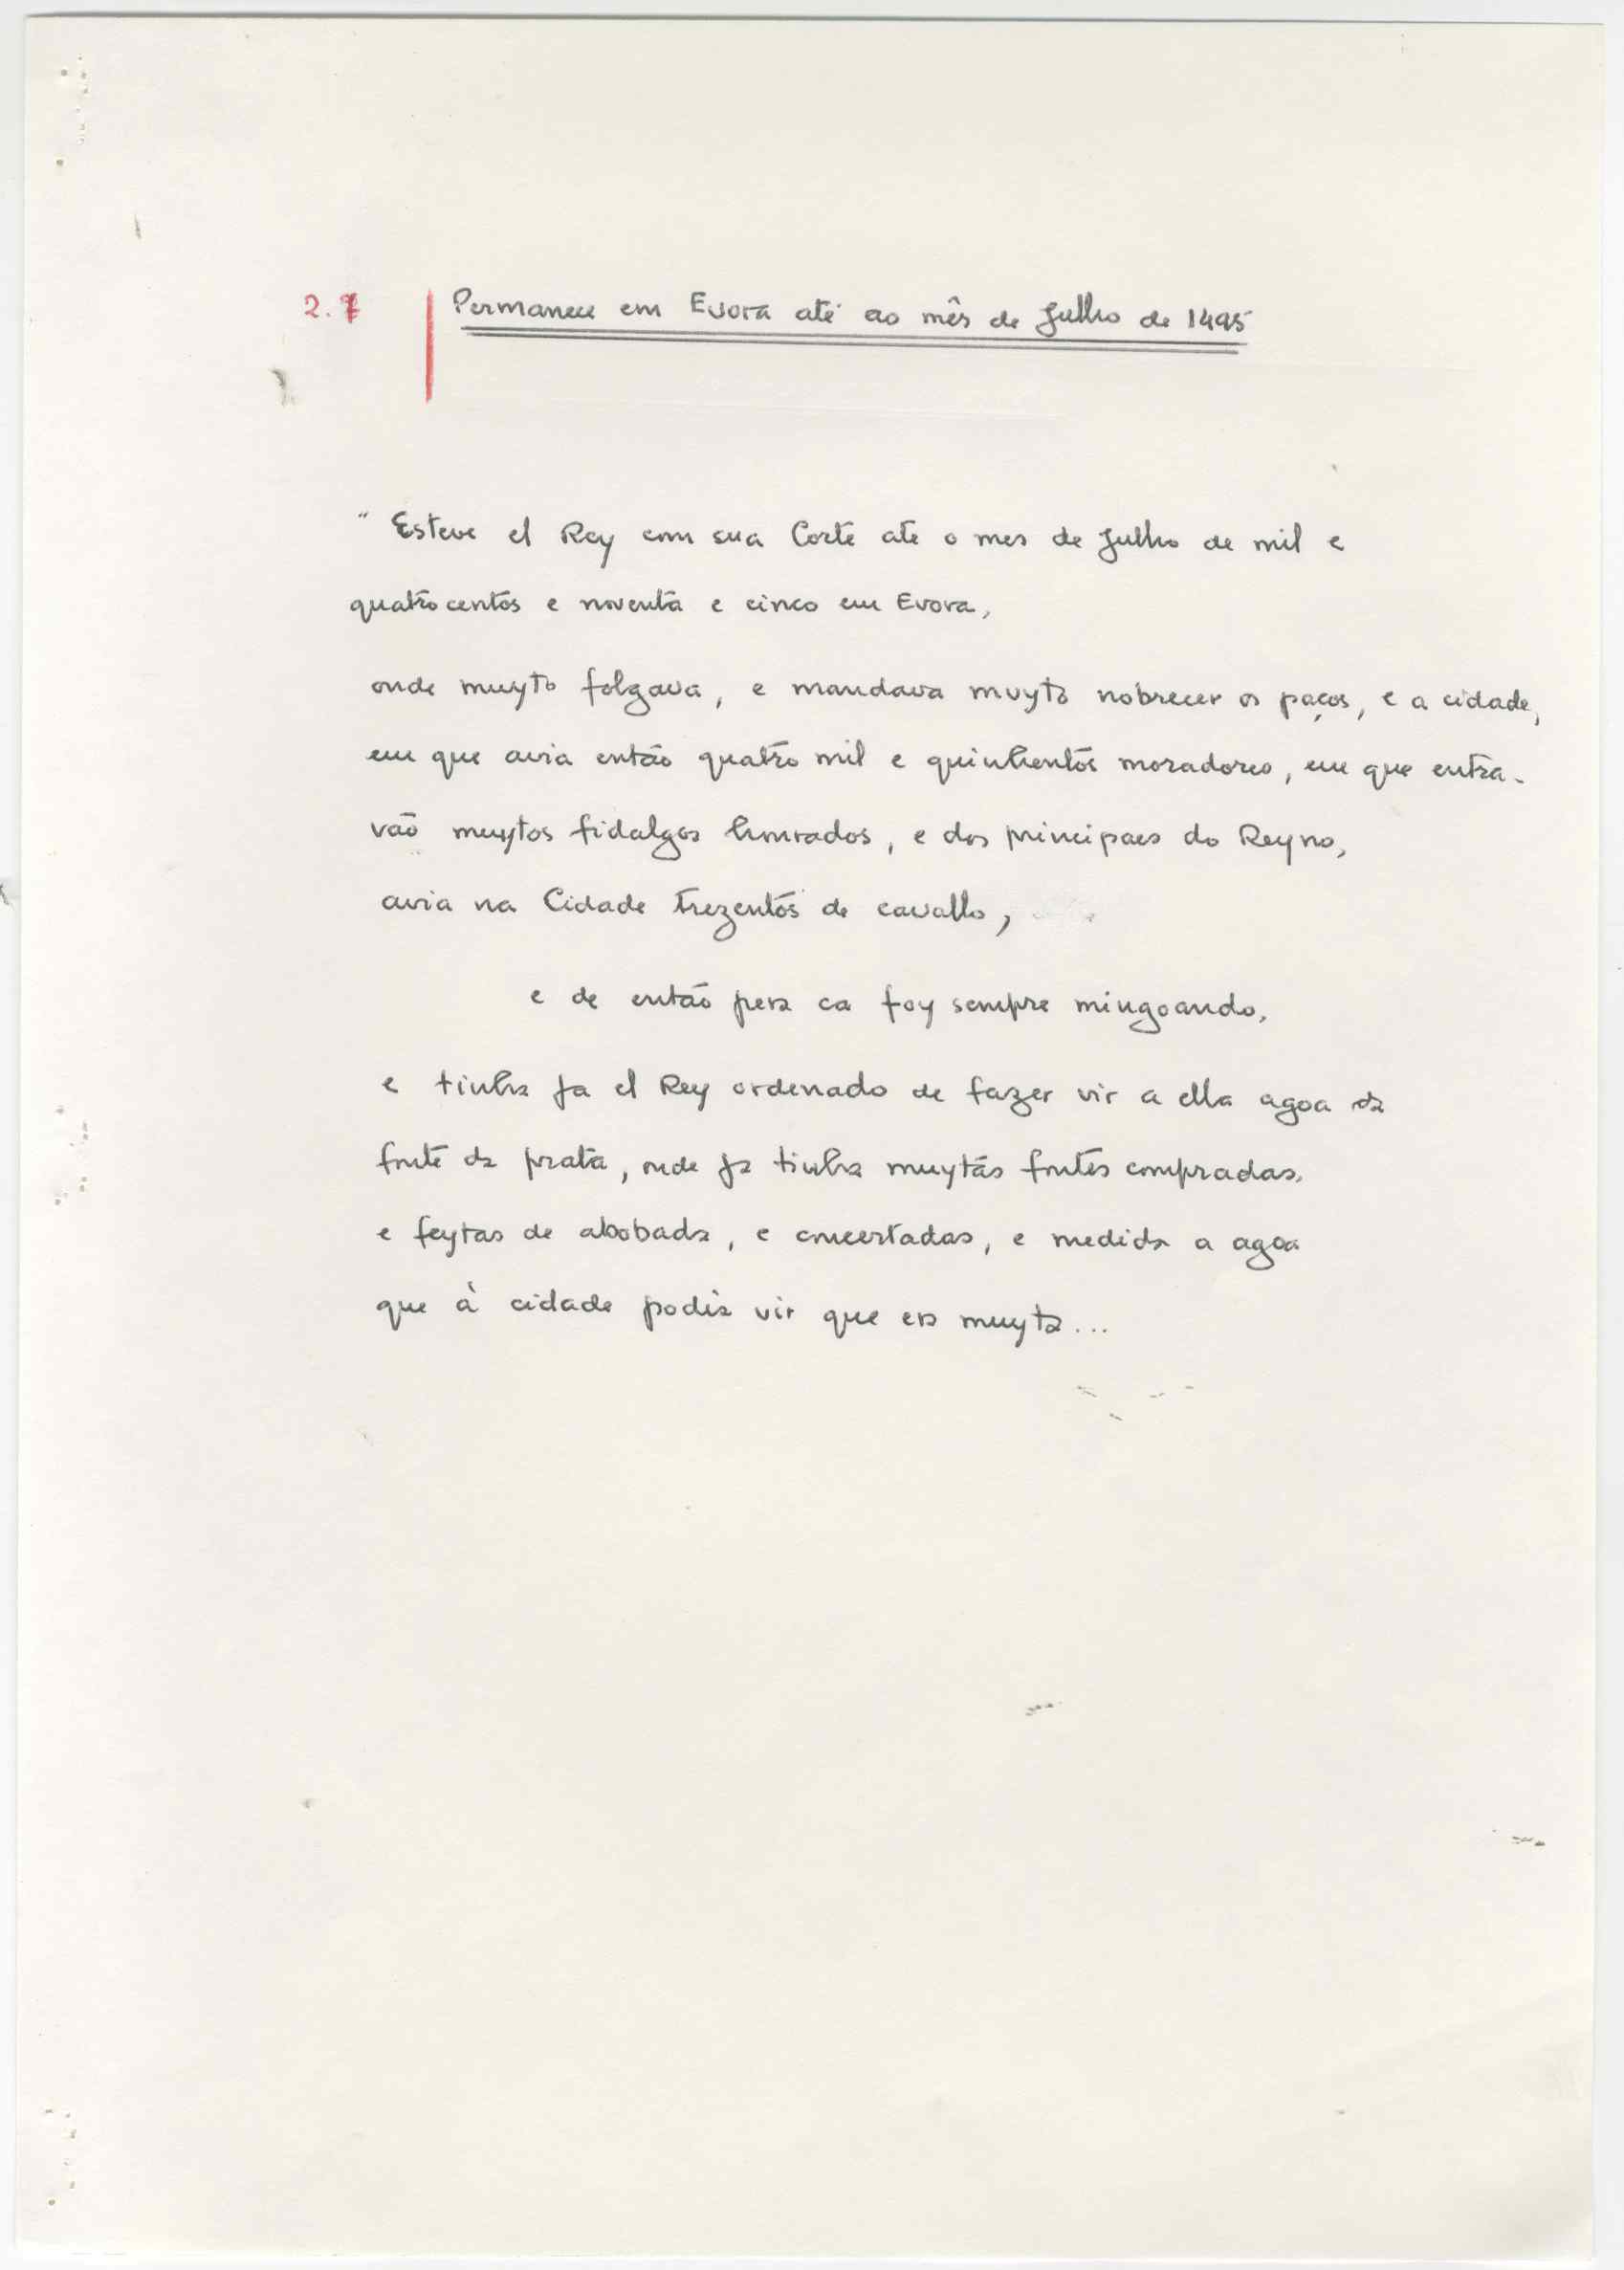 2.7 Permanece em Evora até ao mês de Julho de 1495
" Esteve el Rey com sua Corte ate o mes de Julho de mil e
quatrocentos e noventa e cinco em Evora,
onde muyto folgava, e mandava muyto nobrecer os paços, e a cidade,
em que avia então quatro mil e quinhentos moradores, em que entra-
vaõ muytos fidalgos honrados, e dos principaes do Reyno,
avia na Cidade trezentos de cavallo,
e de então pera ca foy sempre mingoando,
e tinha ja el Rey ordenado de fazer vir a ella agoa da
fonte da prata, onde ja tinha muytas fontes compradas,
e feytas de abobada, e concertadas, e medida a agoa
que à cidade podia vir que era muyta...